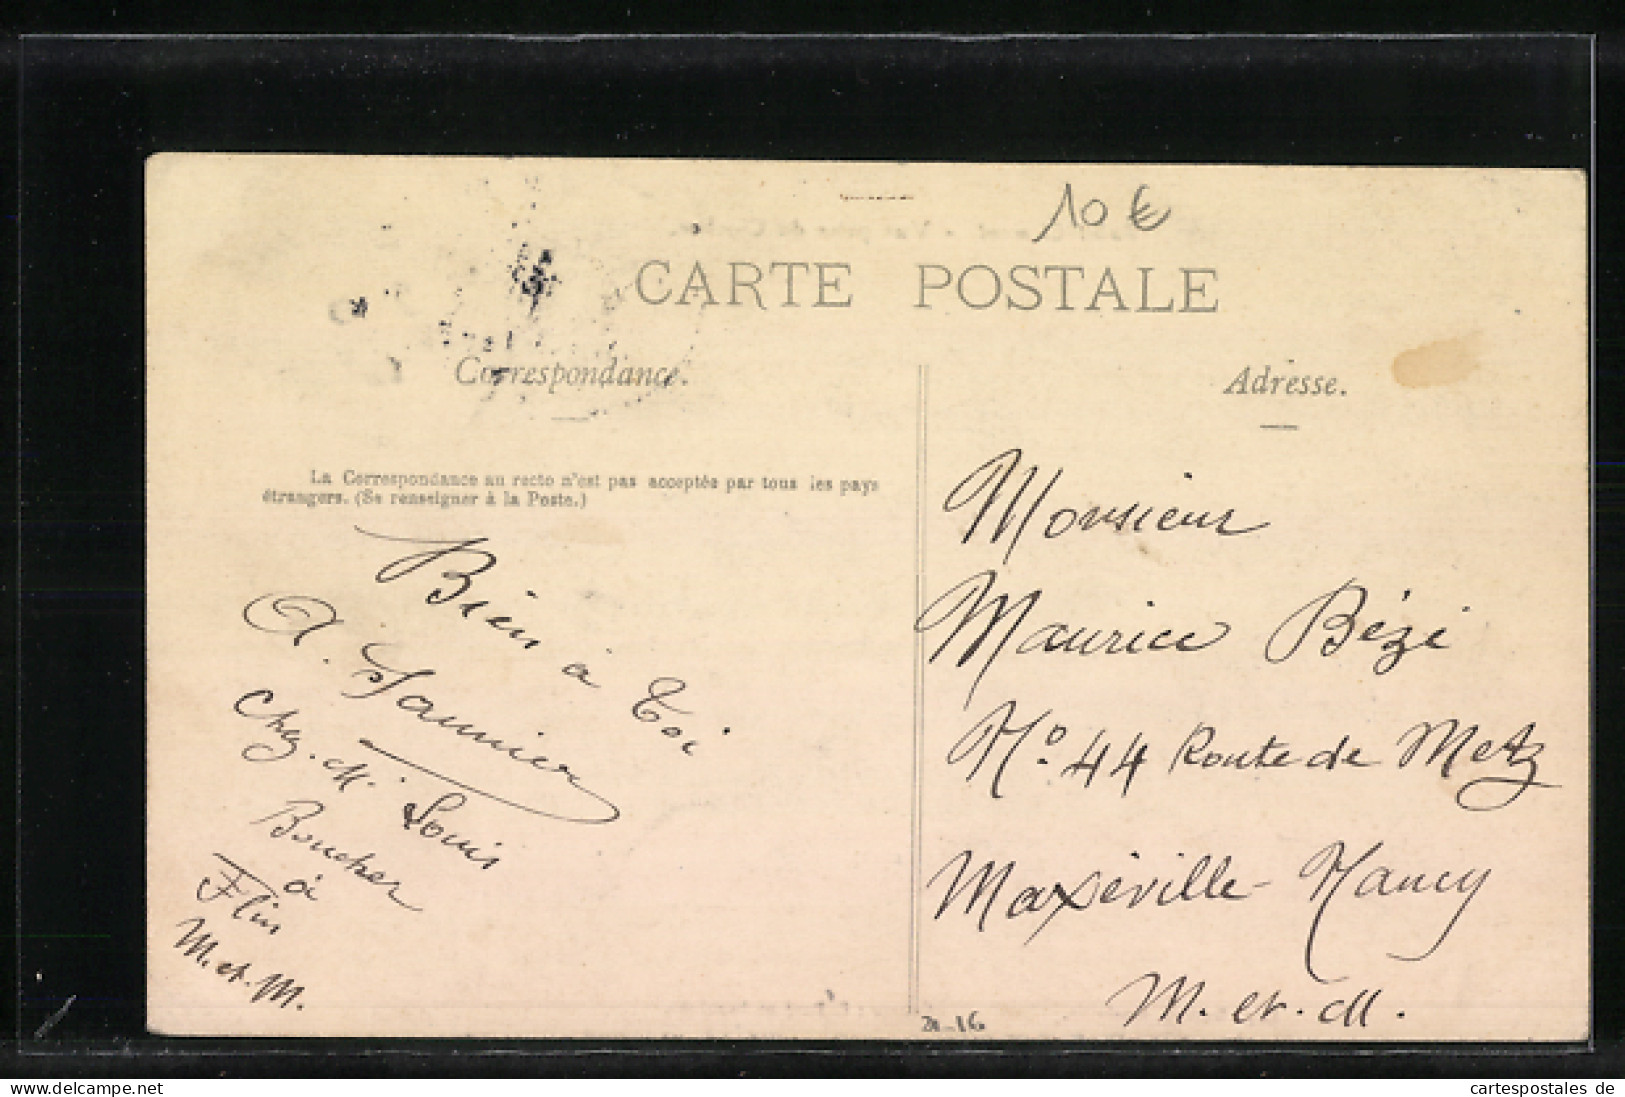 10 €
CARTE POSTALE
Correspondance.
La Correspondance au recto n'est pas acceptée par tous les pays
étrangers. (Se renseigner à la Poste.)
Bien à toi
A. Saunier
Chez. M. Louis
Boucher
à
Flin
M. et. M.
Adresse.
Monsieur
Maurice Bézé
No. 44 Route de Metz
Maxéville - Nancy
M. et. M.
21-16
cartespostales de